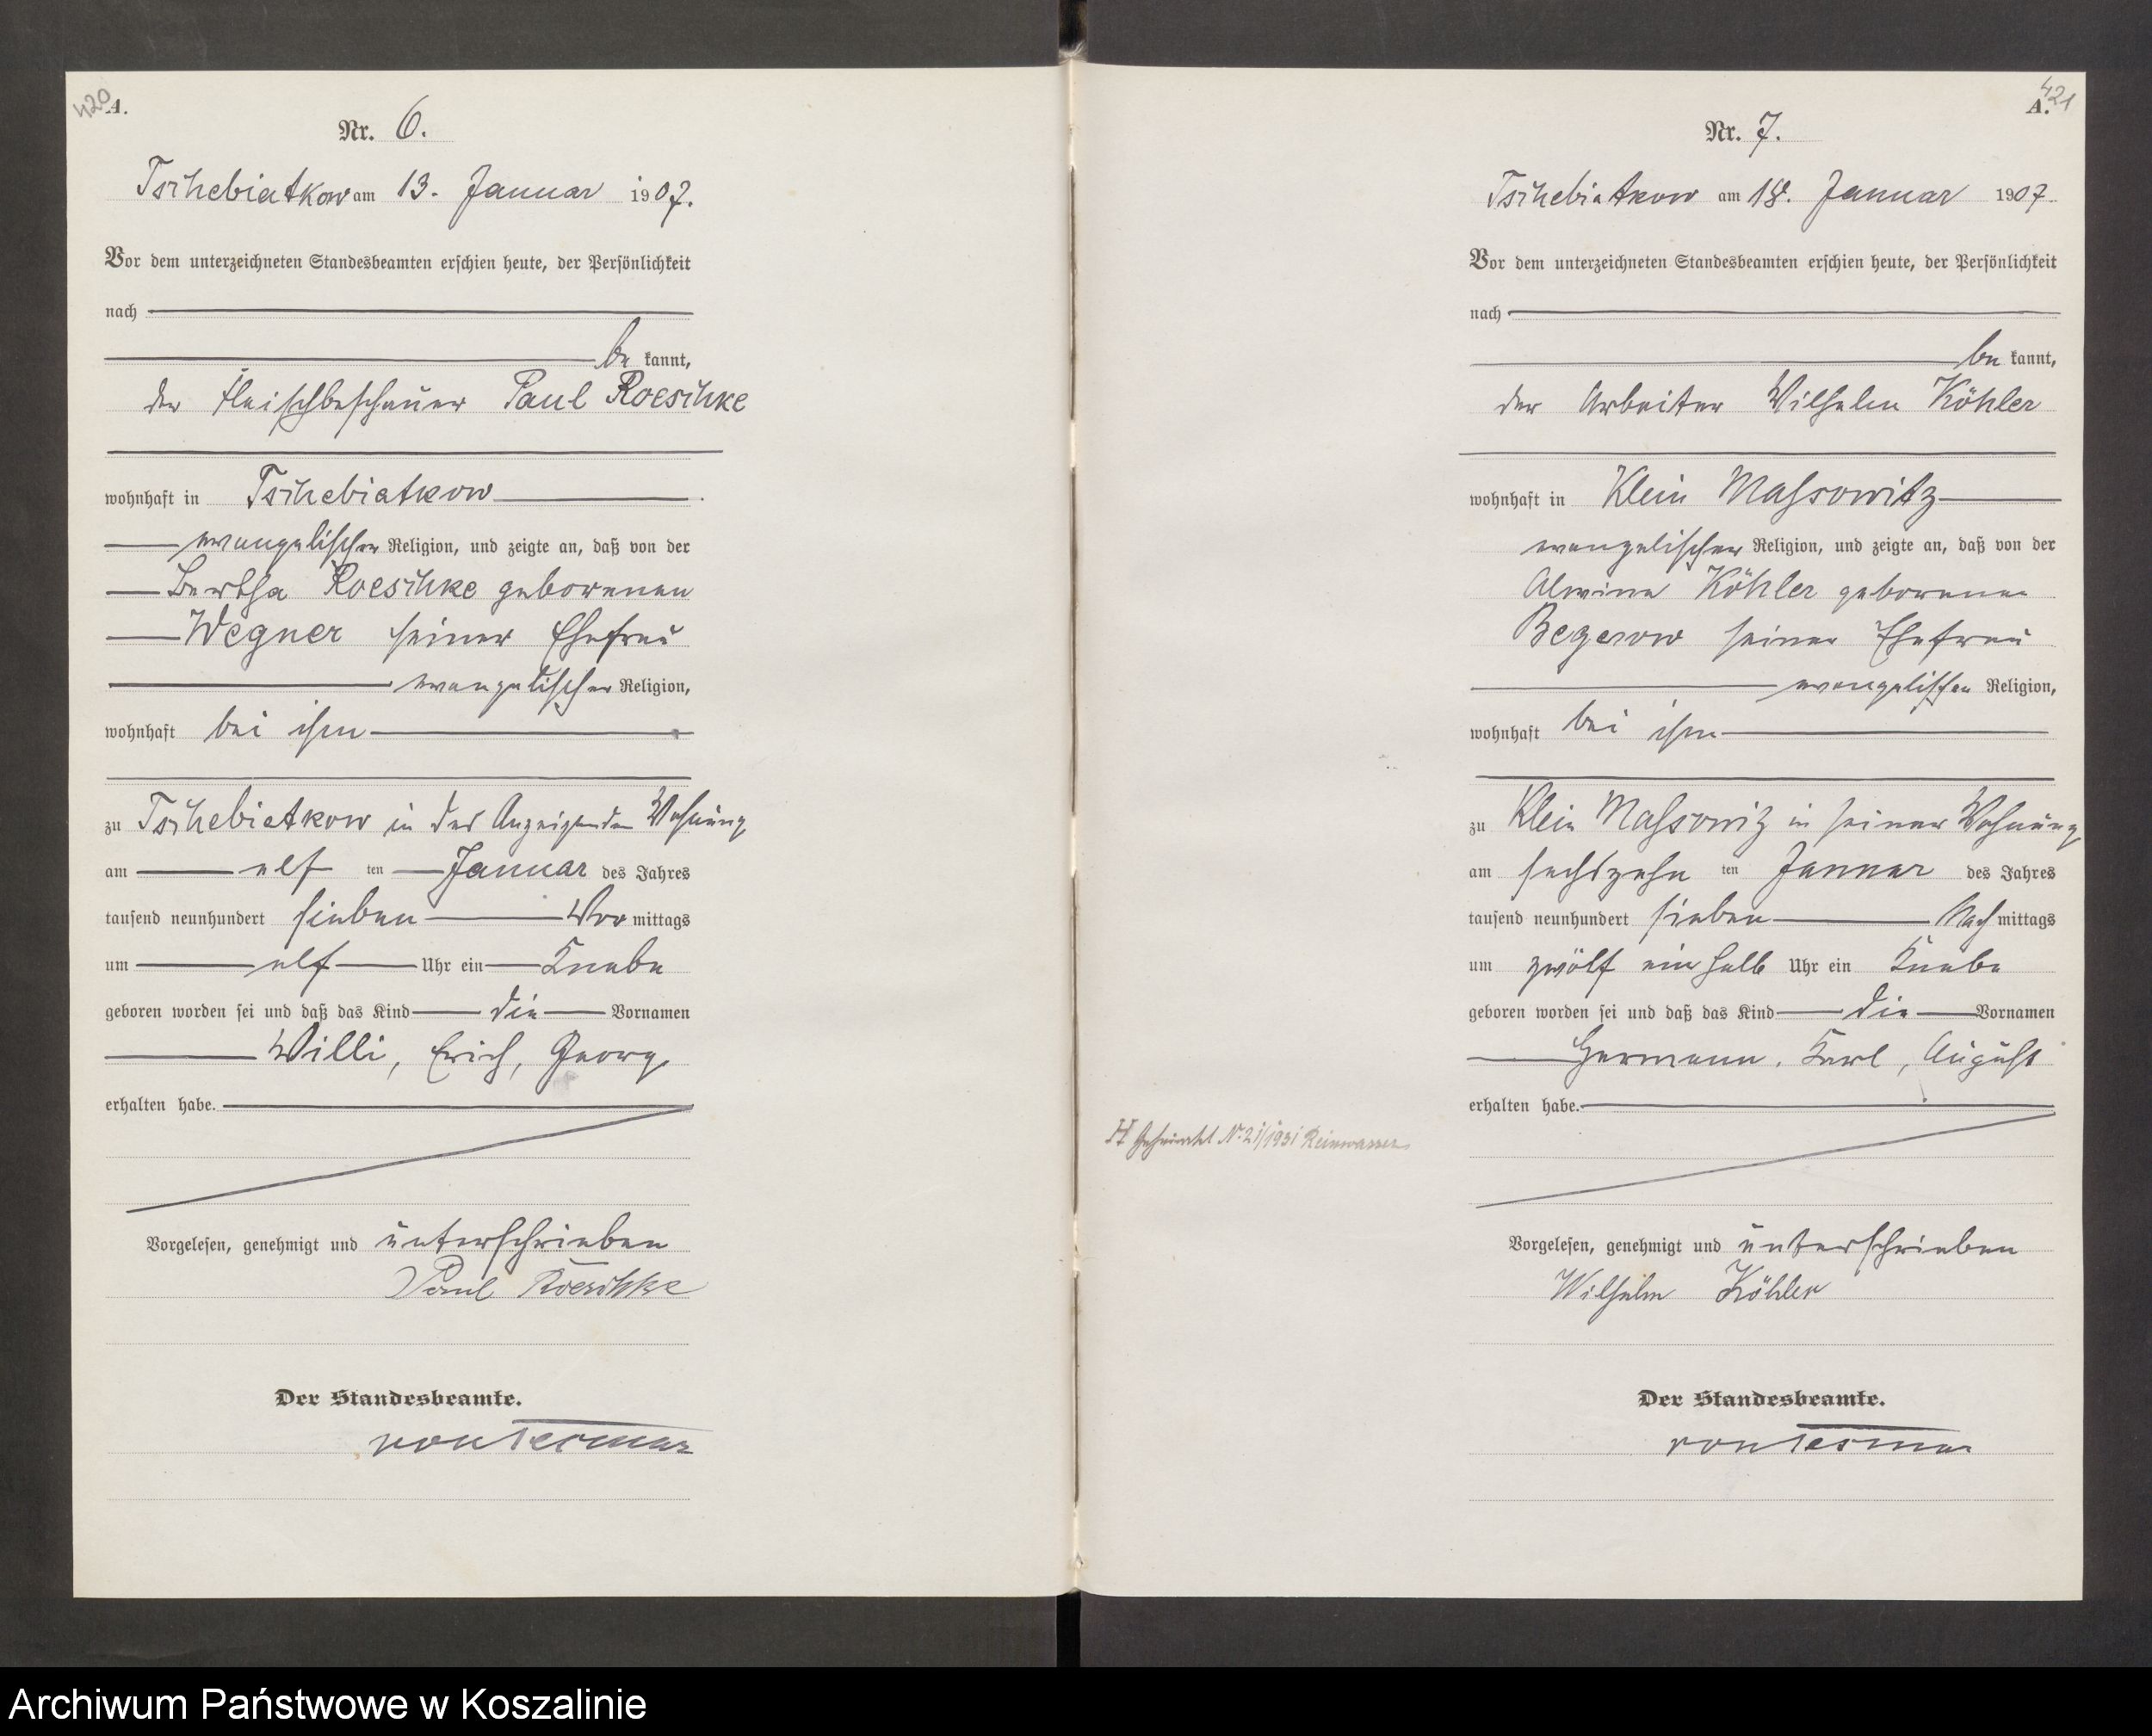 420
A.
Nr. 6.
Tschebiatkow am 13. Januar 1907.
Vor dem unterzeichneten Standesbeamten erschien heute, der Persönlichkeit
nach
be kannt,
der Fleischbeschauer Paul Roeschke
wohnhaft in Tschebiatkow
evangelischer Religion, und zeigte an, daß von der
Bertha Roeschke geborenen
Wegner seiner Ehefrau
evangelischer Religion,
wohnhaft bei ihm
zu Tschebiatkow in des Anzeigenden Wohnung
am elf ten Januar des Jahres
tausend neunhundert sieben Vor mittags
um elf Uhr ein Knabe
geboren worden sei und daß das Kind die Vornamen
Willi, Erich, Georg
erhalten habe.
Vorgelesen, genehmigt und unterschrieben
Paul Roeschke
Der Standesbeamte.
von Tesmar
421
A.
Nr. 7.
Tschebiatkow am 18. Januar 1907.
Vor dem unterzeichneten Standesbeamten erschien heute, der Persönlichkeit
nach
be kannt,
der Arbeiter Wilhelm Köhler
wohnhaft in Klein Massowitz
evangelischer Religion, und zeigte an, daß von der
Alwine Köhler geborenen
Begerow seiner Ehefrau
evangelischen Religion,
wohnhaft bei ihm
zu Klein Massowitz in seiner Wohnung
am sechszehn ten Januar des Jahres
tausend neunhundert sieben Nach mittags
um zwölf ein halb Uhr ein Knabe
geboren worden sei und daß das Kind die Vornamen
Hermann, Karl, August
erhalten habe.
H Geheiratet Nº 21/1931 Reinwasser
Vorgelesen, genehmigt und unterschrieben
Wilhelm Köhler
Der Standesbeamte.
von Tesmar
Archiwum Państwowe w Koszalinie